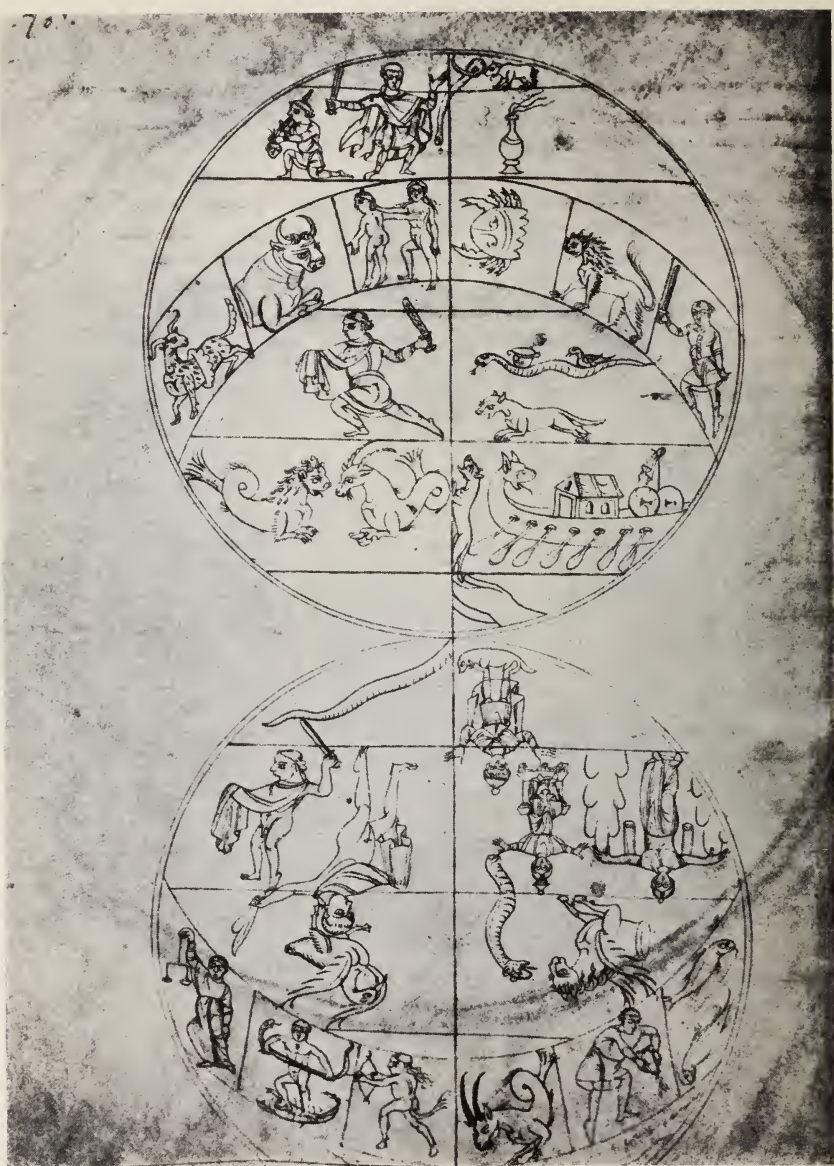 ·70·.